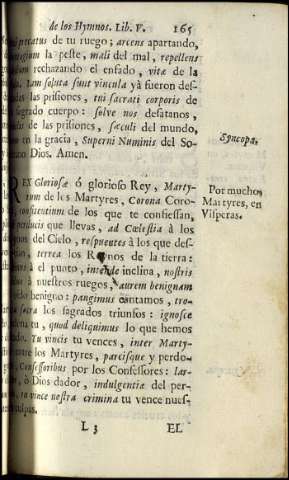 de los Hymnos. Lib. V. 165
precatus de tu ruego; arcens apartando,
la peste, mali del mal, repellens
rechazando el enfado, vitæ de la
tam soluta sunt vincula yà fueron des-
las prisiones, tui sacrati corporis de
sagrado cuerpo: solve nos desatanos,
de las prisiones, sæculi del mundo,
en la gracia, Superni Numinis del So-
Dios. Amen.
Syncopa.
REX Gloriosæ ó glorioso Rey, Marty-
rum de los Martyres, Corona Coro-
confitentium de los que te confiessan,
perducis que llevas, ad Cœlestia à los
del Cielo, respuentes à los que des-
terrea los Reynos de la tierra:
à el punto, intende inclina, nostris
à nuestros ruegos, aurem benignam
benigno: pangimus cantamos, tro-
sacra los sagrados triunfos: ignosce
tu, quod deliquimus lo que hemos
Tu vincis tu vences, inter Marty-
entre los Martyres, parcisque y perdo-
Confessoribus por los Confessores: lar-
ò Dios dador, indulgentiæ del per-
tu vince nostra crimina tu vence nues-
culpas.
Por muchos
Martyres, en
Visperas.
L 3 EL